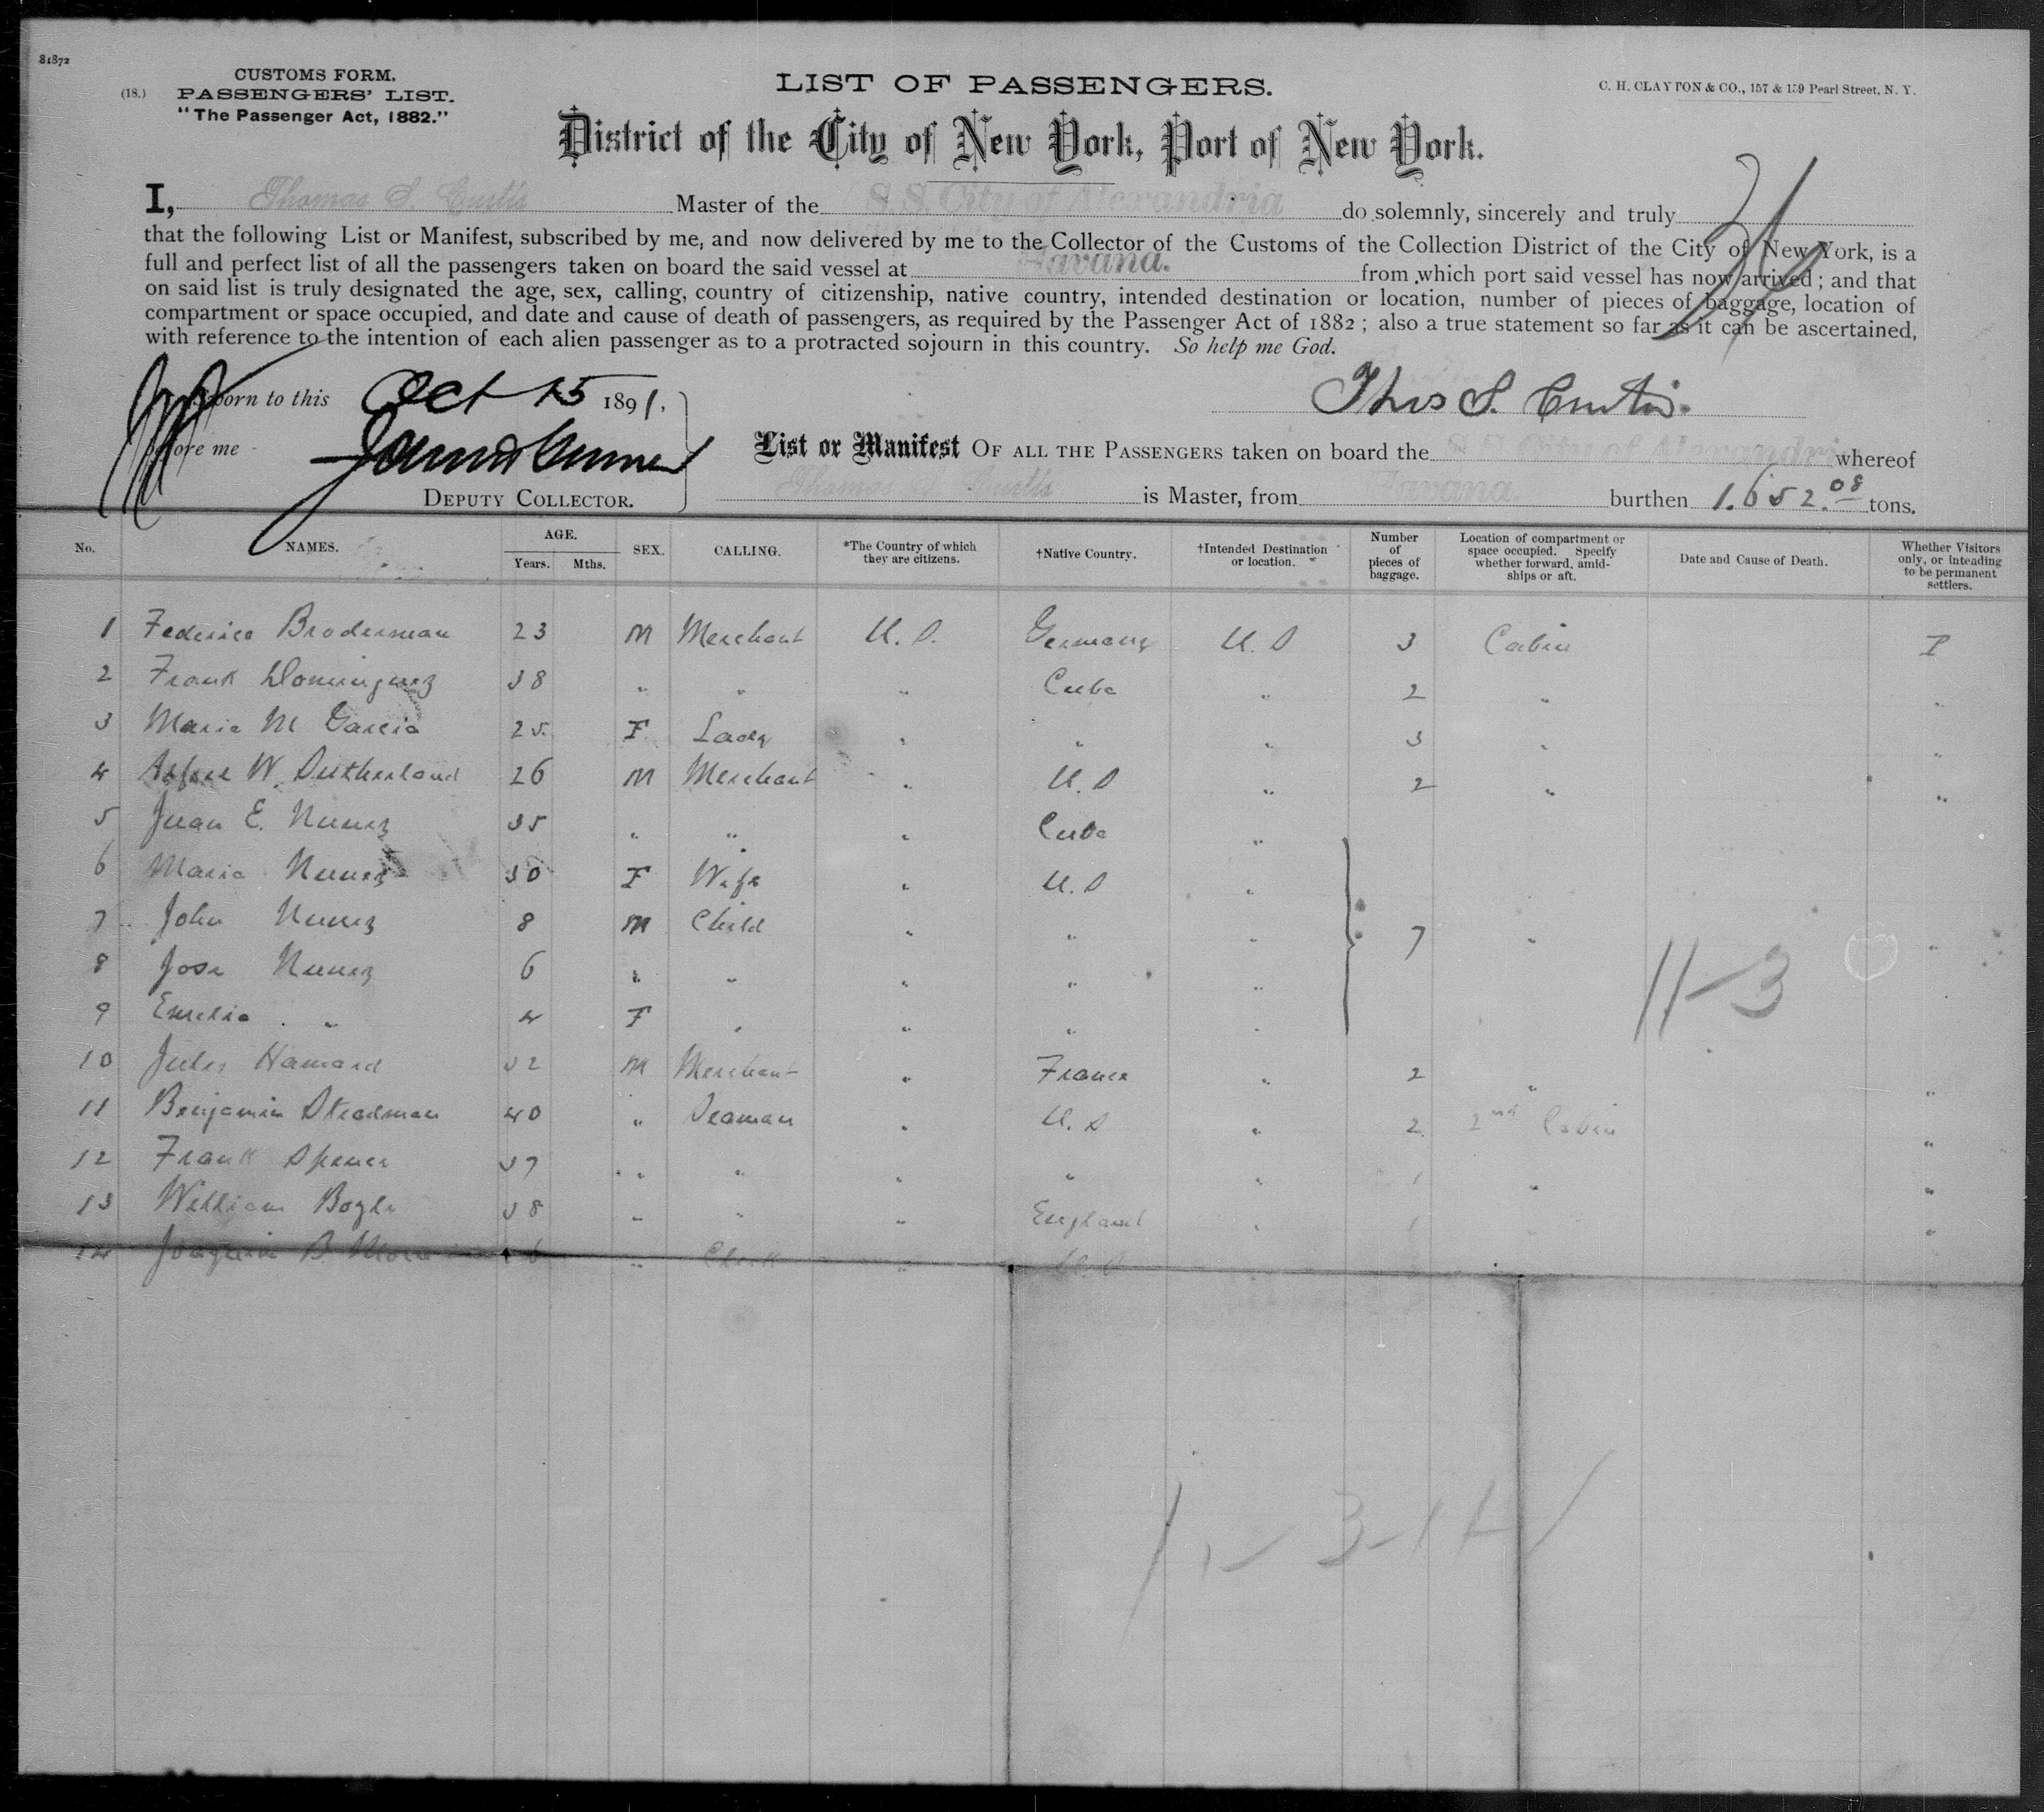 81872
CUSTOMS FORM.
(18.) PASSENGERS' LIST.
"The Passenger Act, 1882."
LIST OF PASSENGERS.
C. H. CLAYTON & CO., 157 & 159 Pearl Street, N. Y.
District of the City of New York, Port of New York.
I, Thomas S. Curtis Master of the S. S. City of Alexandria do solemnly, sincerely and truly
that the following List or Manifest, subscribed by me, and now delivered by me to the Collector of the Customs of the Collection District of the City of New York, is a
full and perfect list of all the passengers taken on board the said vessel at Havana. from which port said vessel has now arrived; and that
on said list is truly designated the age, sex, calling, country of citizenship, native country, intended destination or location, number of pieces of baggage, location of
compartment or space occupied, and date and cause of death of passengers, as required by the Passenger Act of 1882; also a true statement so far as it can be ascertained,
with reference to the intention of each alien passenger as to a protracted sojourn in this country. So help me God.
Sworn to this Oct 15 1891,
Thos S. Curtis.
before me
DEPUTY COLLECTOR.
List or Manifest OF ALL THE PASSENGERS taken on board the S. S. City of Alexandria whereof
Thomas S. Curtis is Master, from Havana. burthen 1.652.08 tons.
No. NAMES. AGE. Years. Mths. SEX. CALLING. *The Country of which they are citizens. †Native Country. †Intended Destination or location. Number of pieces of baggage. Location of compartment or space occupied. Specify whether forward, amidships or aft. Date and Cause of Death. Whether Visitors only, or intending to be permanent settlers.
1 Federico Broderman 23 M Merchant U. S. Germany U. S 3 Cabin P
2 Frank Dominguez 38 " " " Cuba " 2 " "
3 Maria M Garcia 25 F Lady " " " 3 " "
4 W. Sutherland 26 M Merchant " U. S " 2 " "
5 Juan E. Nunez 35 " " " Cuba "
6 Maria Nunez 30 F Wife " U. S "
7 John Nunez 8 M Child " " " 7 " "
8 Jose Nunez 6 " " " " "
9 Emelia " 4 F " " " "
11-3
10 Jules Hamard 32 M Merchant " France " 2 " "
11 Benjamin Steadman 40 " Seaman " U. S " 2 2nd Cabin "
12 Frank Spencer 37 " " " " " 1 " "
13 William Boyle 38 " " " England " 1 " "
14 Joaquin B. Mora " Clerk " U. S